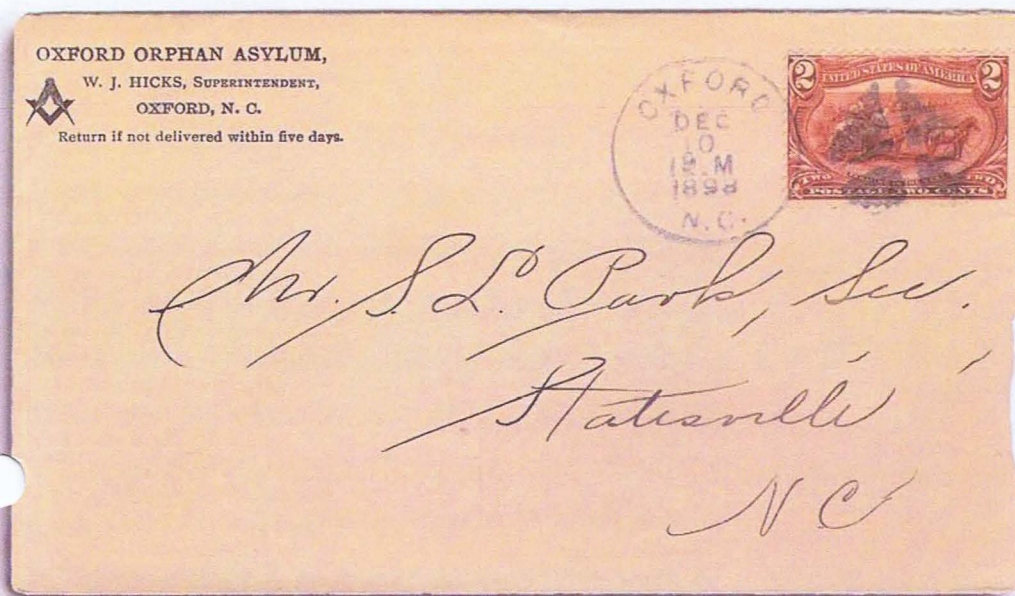 OXFORD ORPHAN ASYLUM,
W. J. HICKS, SUPERINTENDENT,
OXFORD, N. C.
Return if not delivered within five days.
OXFORD
DEC
10
12 M
1898
N.C.
2 UNITED STATES OF AMERICA 2
TWO TWO
POSTAGE TWO CENTS
Mr. S. L. Park, Sec.
Statesville
N C